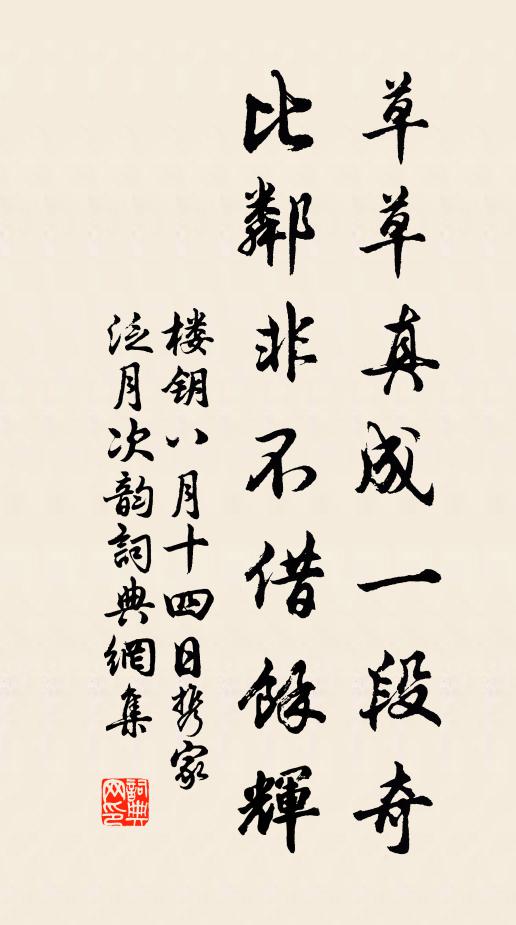 草草真成一段奇
比鄰非不借餘輝
楼钥八月十四日携家
泛月次韵詞典網集
詞典网印